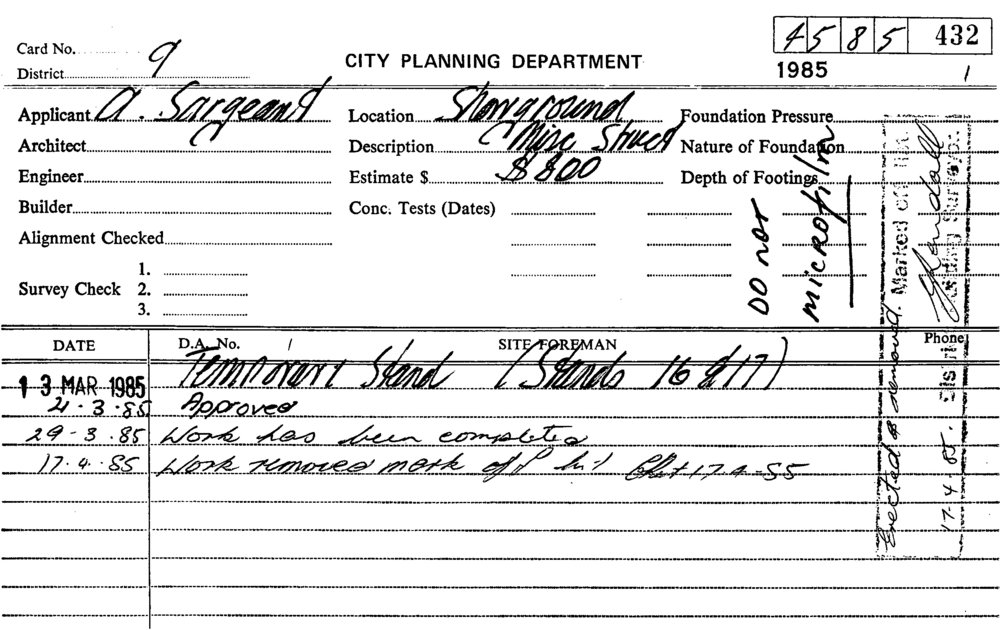 4585 432
Card No.
9
CITY PLANNING DEPARTMENT
District
1985 1
Applicant A. Sargeant Location Showground Foundation Pressure
Architect Description Misc Struct Nature of Foundation
Engineer Estimate $ $800 Depth of Footings
Builder Conc. Tests (Dates)
Alignment Checked
1.
Survey Check 2.
3.
DO NOT
microfilm
DATE D.A. No. SITE FOREMAN Phone
13 MAR 1985 Temporary Stand (Stands 16 & 17)
21·3·85 Approved
29-3.85 Work has been completed
17.4.85 Work removed mark off 17.4-85
Erected & removed. Marked off
17.4.85. District Building Surveyor